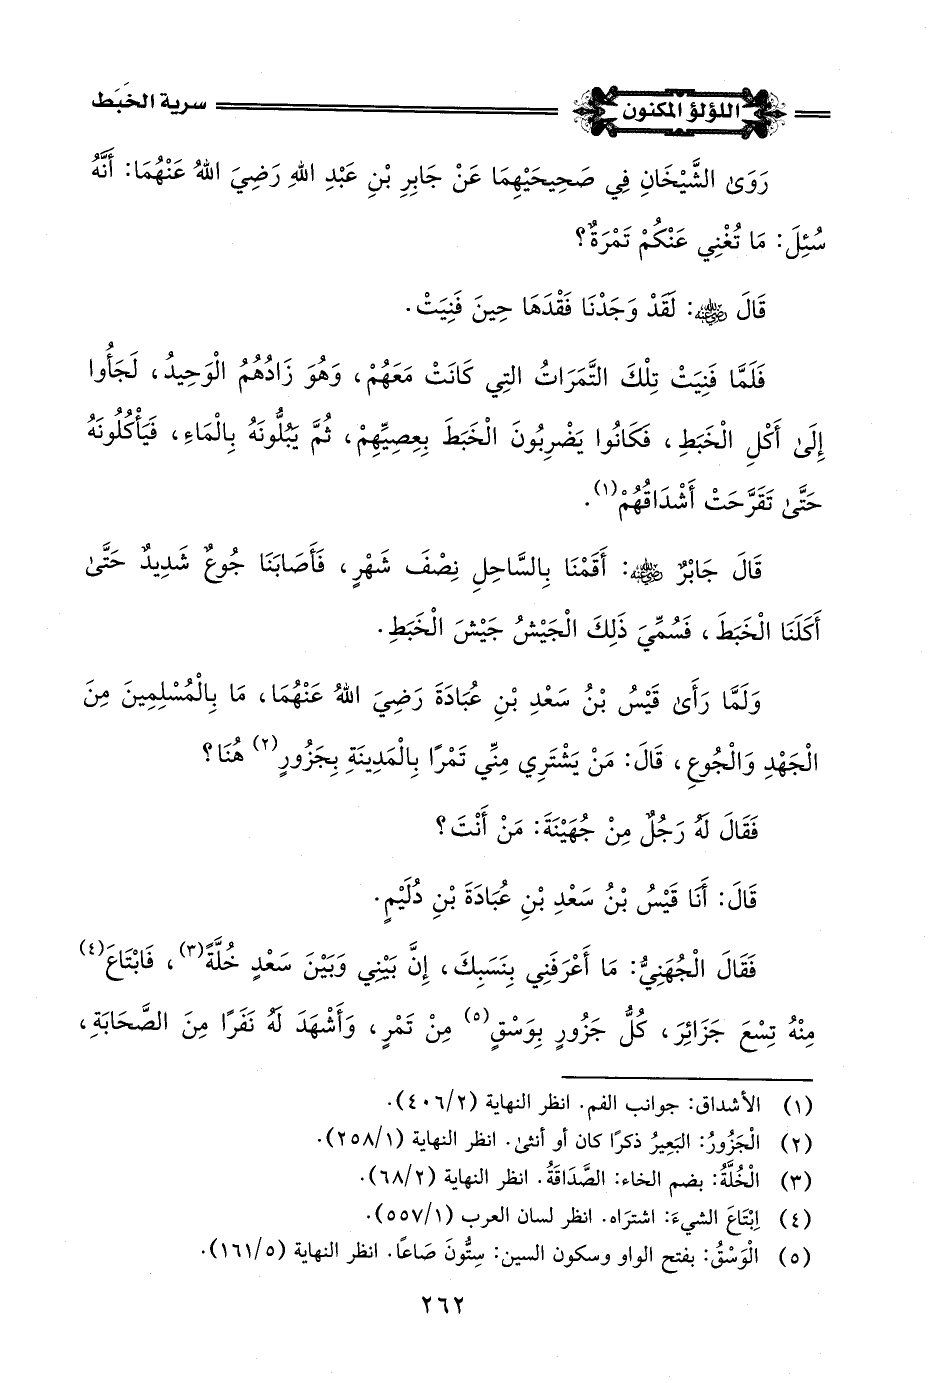 اللؤلؤ المكنون سرية الخَبَط
رَوَىٰ الشَّيْخَانِ فِي صَحِيحَيْهِمَا عَنْ جَابِرِ بْنِ عَبْدِ اللهِ رَضِيَ اللهُ عَنْهُمَا: أَنَّهُ
سُئِلَ: مَا تُغْنِي عَنْكُمْ تَمْرَةٌ؟
قَالَ رضي الله عنه: لَقَدْ وَجَدْنَا فَقْدَهَا حِينَ فَنِيَتْ.
فَلَمَّا فَنِيَتْ تِلْكَ التَّمَرَاتُ التِي كَانَتْ مَعَهُمْ، وَهُوَ زَادُهُمُ الْوَحِيدُ، لَجَأُوا
إِلَىٰ أَكْلِ الْخَبَطِ، فَكَانُوا يَضْرِبُونَ الْخَبَطَ بِعِصِيِّهِمْ، ثُمَّ يَبُلُّونَهُ بِالْمَاءِ، فَيَأْكُلُونَهُ
حَتَّىٰ تَقَرَّحَتْ أَشْدَاقُهُمْ(١).
قَالَ جَابْرٌ رضي الله عنه: أَقَمْنَا بِالسَّاحِلِ نِصْفَ شَهْرٍ، فَأَصَابَنَا جُوعٌ شَدِيدٌ حَتَّىٰ
أَكَلْنَا الْخَبَطَ، فَسُمِّيَ ذَلِكَ الْجَيْشُ جَيْشَ الْخَبَطِ.
وَلَمَّا رَأَىٰ قَيْسُ بْنُ سَعْدِ بْنِ عُبَادَةَ رَضِيَ اللهُ عَنْهُمَا، مَا بِالْمُسْلِمِينَ مِنَ
الْجَهْدِ وَالْجُوعِ، قَالَ: مَنْ يَشْتَرِي مِنِّي تَمْرًا بِالْمَدِينَةِ بِجَزُورٍ(٢) هُنَا؟
فَقَالَ لَهُ رَجُلٌ مِنْ جُهَيْنَةَ: مَنْ أَنْتَ؟
قَالَ: أَنَا قَيْسُ بْنُ سَعْدِ بْنِ عُبَادَةَ بْنِ دُلَيْمٍ.
فَقَالَ الْجُهَنِيُّ: مَا أَعْرَفَنِي بِنَسَبِكَ، إِنَّ بَيْنِي وَبَيْنَ سَعْدٍ خُلَّةً(٣)، فَابْتَاعَ(٤)
مِنْهُ تِسْعَ جَزَائِرَ، كُلُّ جَزُورٍ بِوَسْقٍ(٥) مِنْ تَمْرٍ، وَأَشْهَدَ لَهُ نَفَرًا مِنَ الصَّحَابَةِ،
(١) الأشداق: جوانب الفم. انظر النهاية (٤٠٦/٢).
(٢) الْجَزُورُ: البَعِيرُ ذكرًا كان أو أنثىٰ. انظر النهاية (٢٥٨/١).
(٣) الْخُلَّةُ: بضم الخاء: الصَّدَاقَةُ. انظر النهاية (٦٨/٢).
(٤) اِبْتَاعَ الشيءَ: اشترَاه. انظر لسان العرب (٥٥٧/١).
(٥) الْوَسْقُ: بفتح الواو وسكون السين: سِتُّونَ صَاعًا. انظر النهاية (١٦١/٥).
٢٦٢